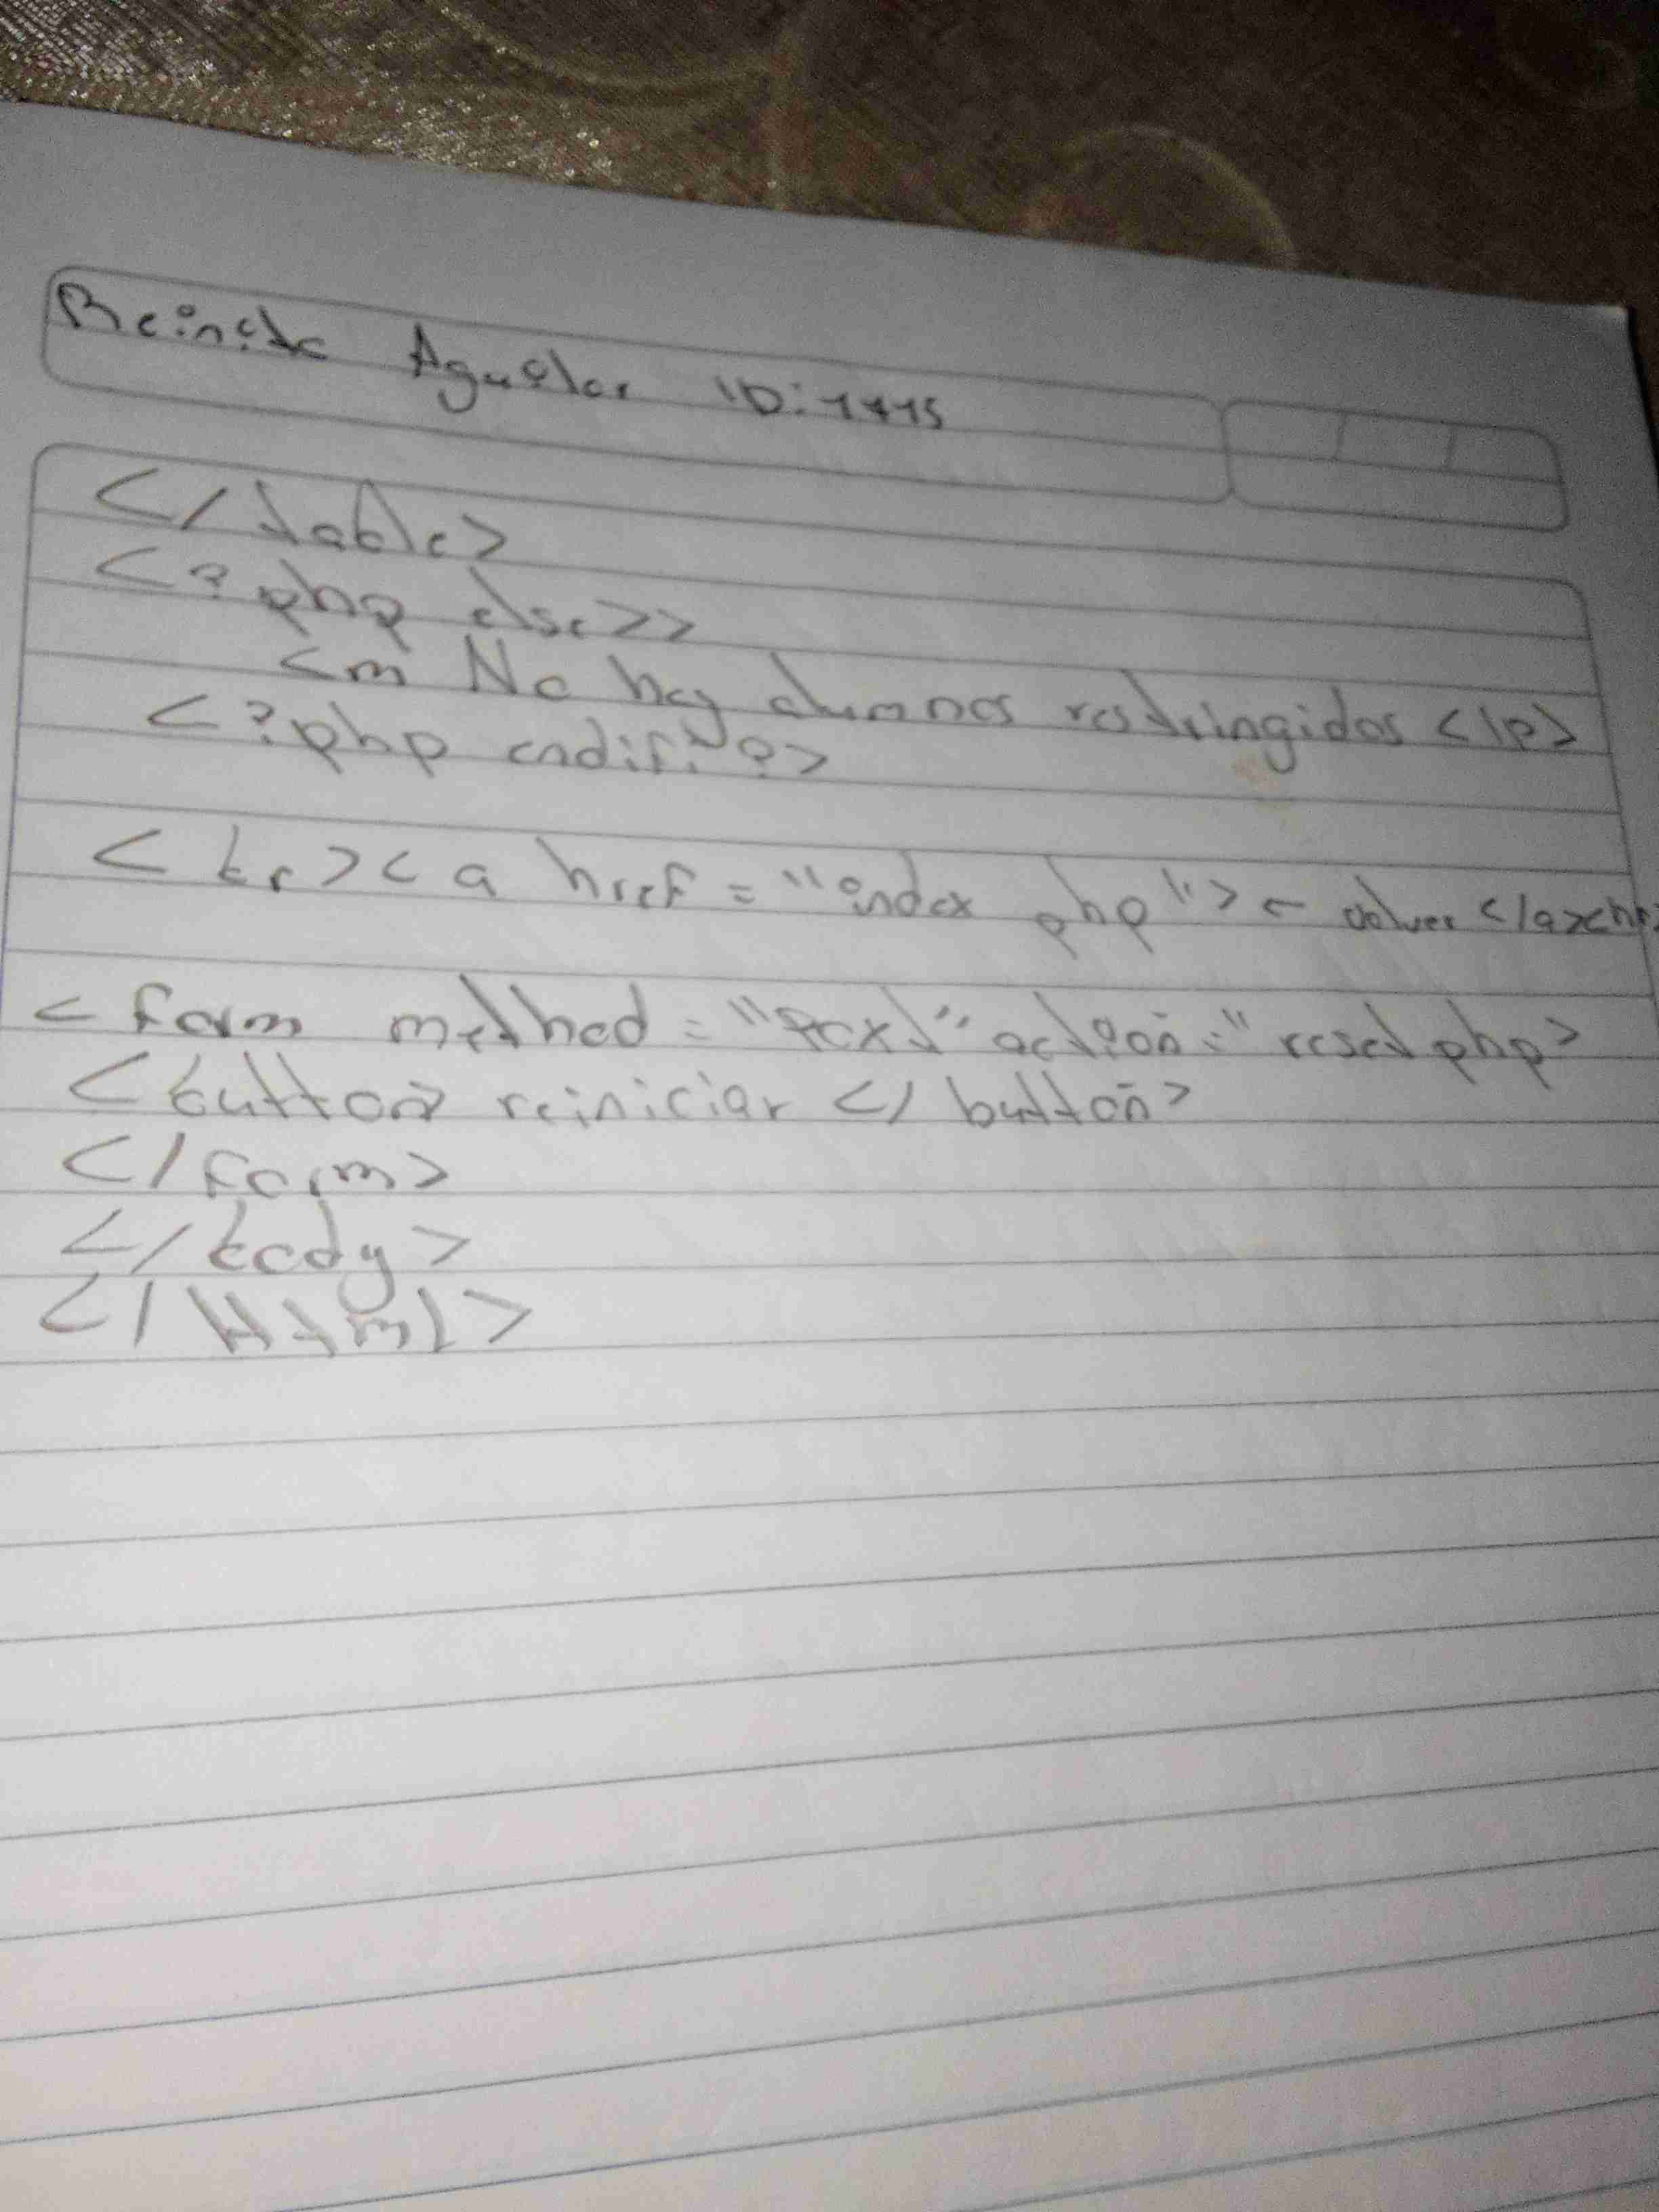 Aguilar ID: 1775
</table>
<?php else>>
<m No hay alumnos restringidos </p>
<?php endif; ?>
<br><a href="index php"> ← volver </a>
<form method = "Post" action = " reset php>
<button> reiniciar </ button>
</form>
</body>
</Html>